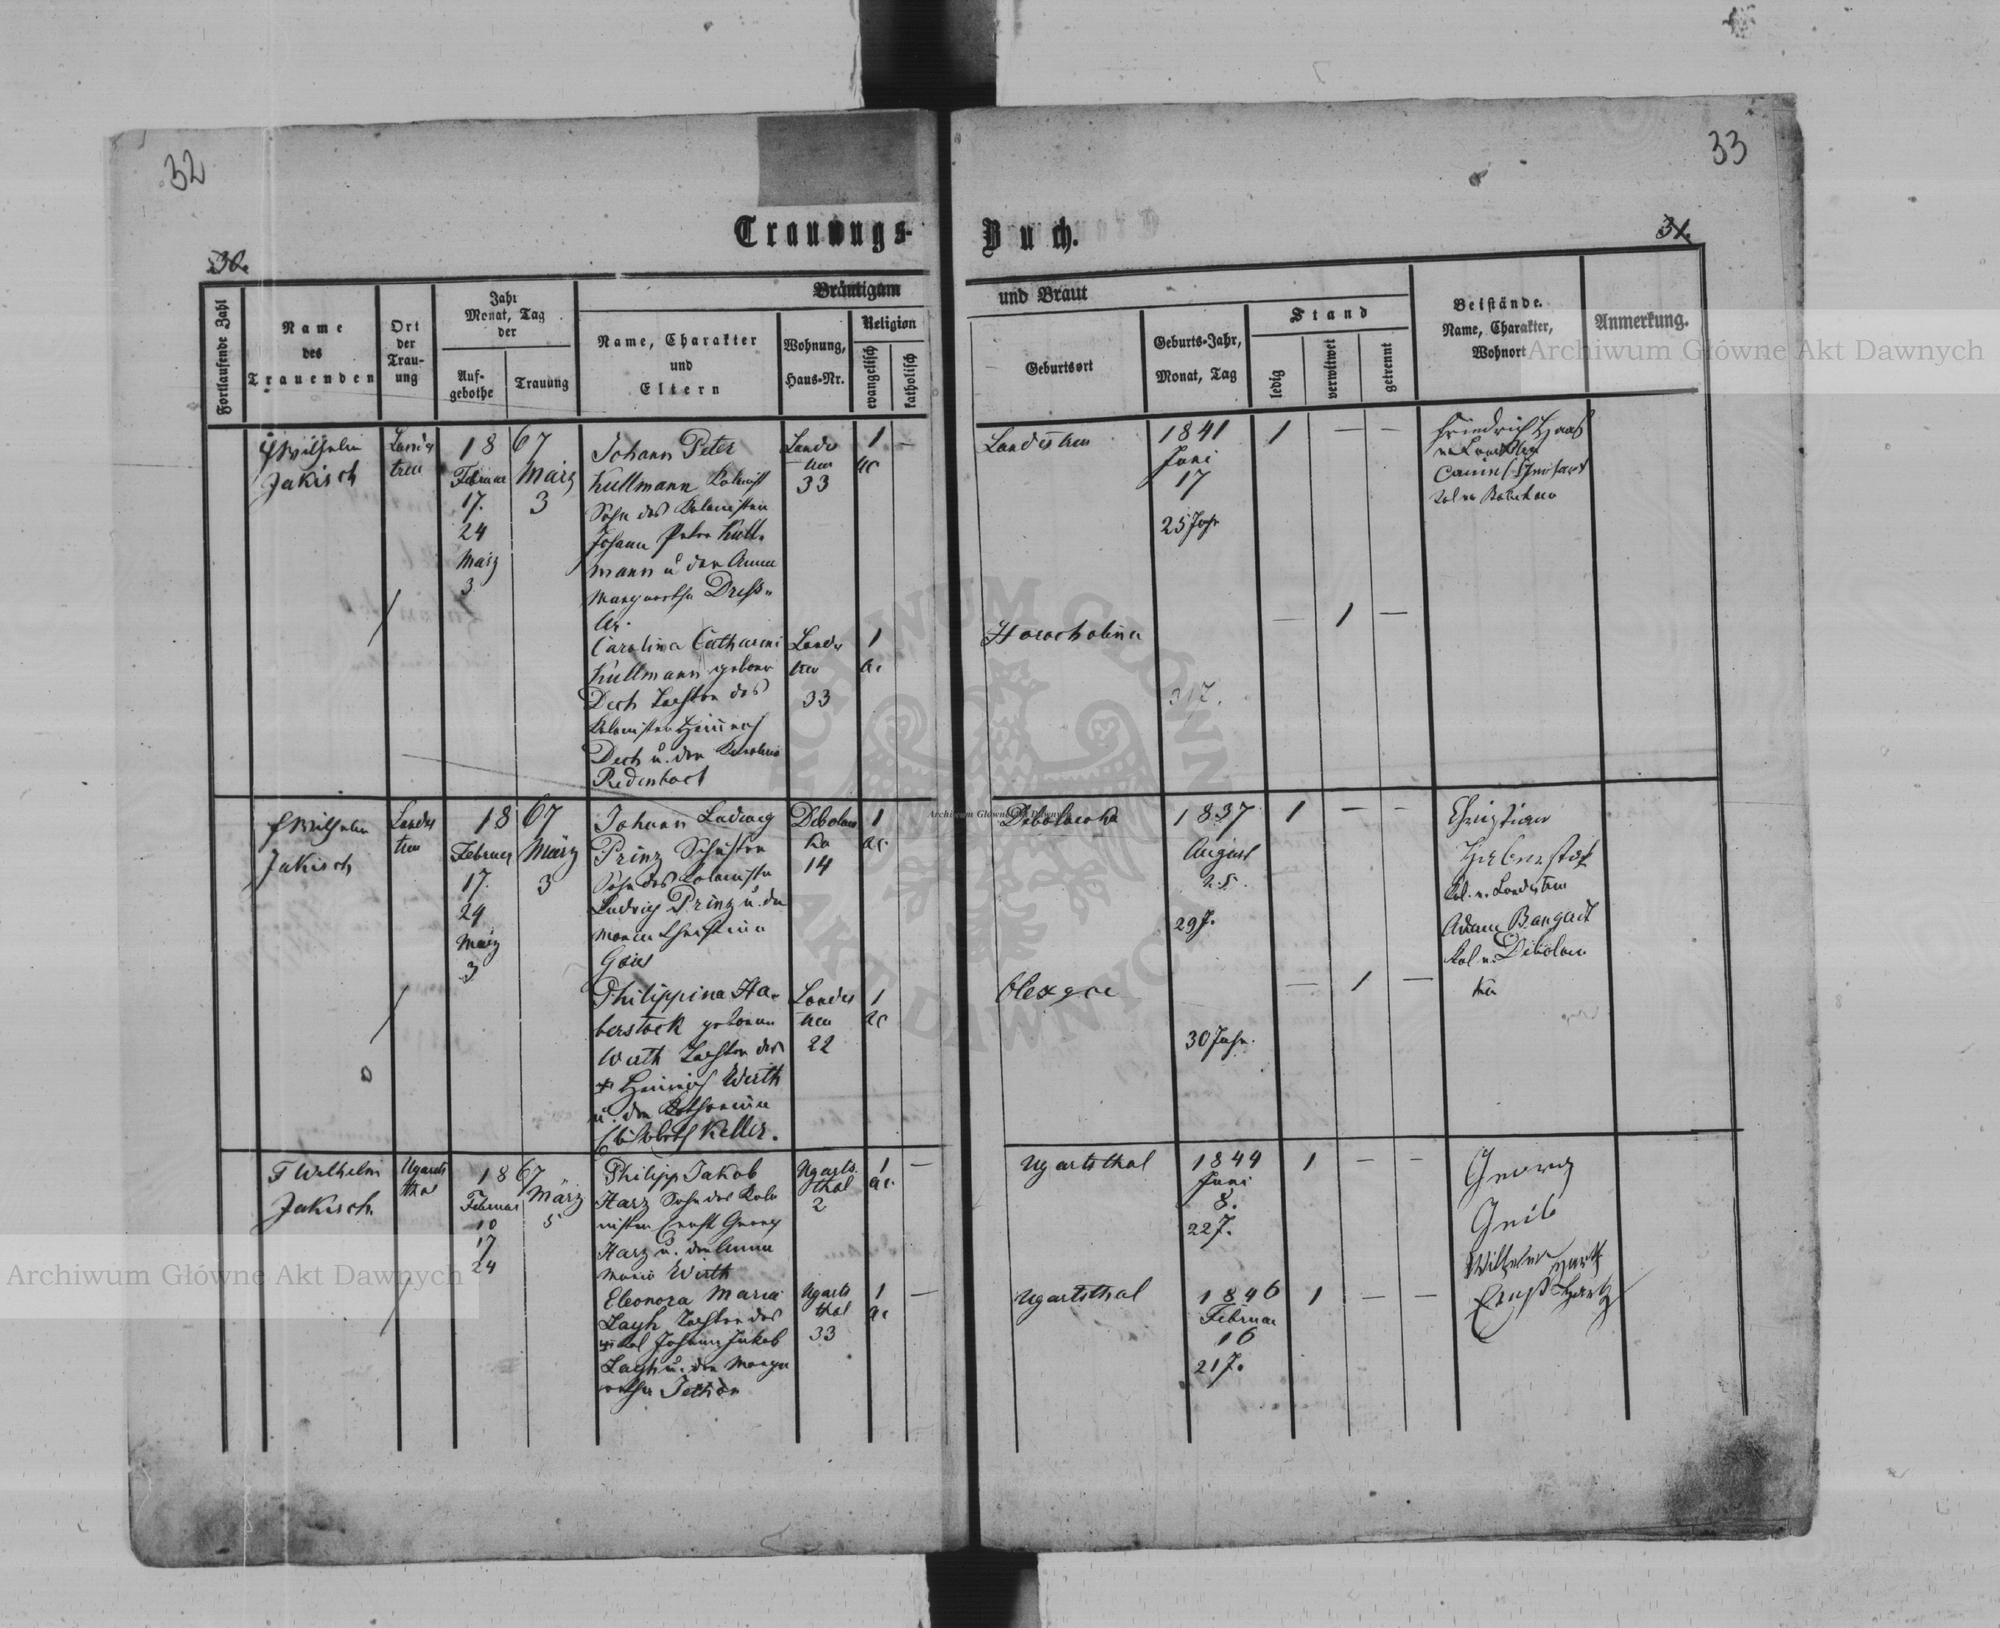 32
33
Trauungs-
Buch.
30.
31.
Fortlaufende Zahl
Name
des
Trauenden
Ort
der
Trau-
ung
Jahr
Monat, Tag
der
Auf-
gebothe
Trauung
Bräutigam
Name, Charakter
und
Eltern
Wohnung,
Haus-Nr.
Religion
evangelisch
katholisch
und Braut
Geburtsort
Geburts-Jahr,
Monat, Tag
Stand
ledig
verwitwet
getrennt
Beistände.
Name, Charakter,
Wohnort
Anmerkung.
F Wilhelm
Jakisch
Landes
treu
18 67
Februar
17.
24
März
3
März
3
Johann Peter
Kullmann Kolonist
Sohn des Kolonisten
Johann Peter Kull-
mann u der Anna
Margaretha Dress-
ler.
Landes
treu
33
1
ac
—
Landestreu
1841
Juni
17
25 Jahr
1
—
—
Friedrich Haas
Carolina Catharina
Kullmann geborne
Dech Tochter des
Kolonisten Heinrich
Dech u. der Karolina
Redenbach
Landes
treu
33
1
ac
Horocholina
31 J.
—
1
—
F Wilhelm
Jakisch
Landes
treu
18 67
Februar
17.
24
März
3
März
3
Johann Ludwig
Prinz Schuster
Sohn des Kolonisten
Ludwig Prinz u. der
Maria Christina
Landes
treu
22
14
1
ac.
1837
August
25.
29 J.
1
—
—
Christian
Haberstock
Kol. v. Landestreu
Adam Bangert
Philippina Ha-
berstock geborene
Wirth Tochter des
+ Heinrich Wirth
u. der Katharina
Elisabeth Keller.
1
ac
30 Jahr.
—
1
—
F Wilhelm
Jakisch
Ugarts
thal
18 67
Februar
10
17
24
März
5
Philipp Jakob
Harz Sohn des Kolo
nisten Ernst Georg
Harz u. der Anna
Maria Wirth
Ugarts
thal
2
1
ac.
—
Ugartsthal
1844
Juni
8.
22 J.
1
—
—
Georg
Geib
Wilhelm Harth
Ernst Hartz
Eleonora Maria
Layh Tochter des
Kol Johann Jakob
Layh u. der Marga
retha
Ugarts
thal
33
1
ac
—
Ugartsthal
1846
Februar
16
21 J.
1
—
—
Archiwum Główne Akt Dawnych
Archiwum Główne Akt Dawnych
Archiwum Główne Akt Dawnych
ARCHIWUM GŁÓWNE AKT DAWNYCH